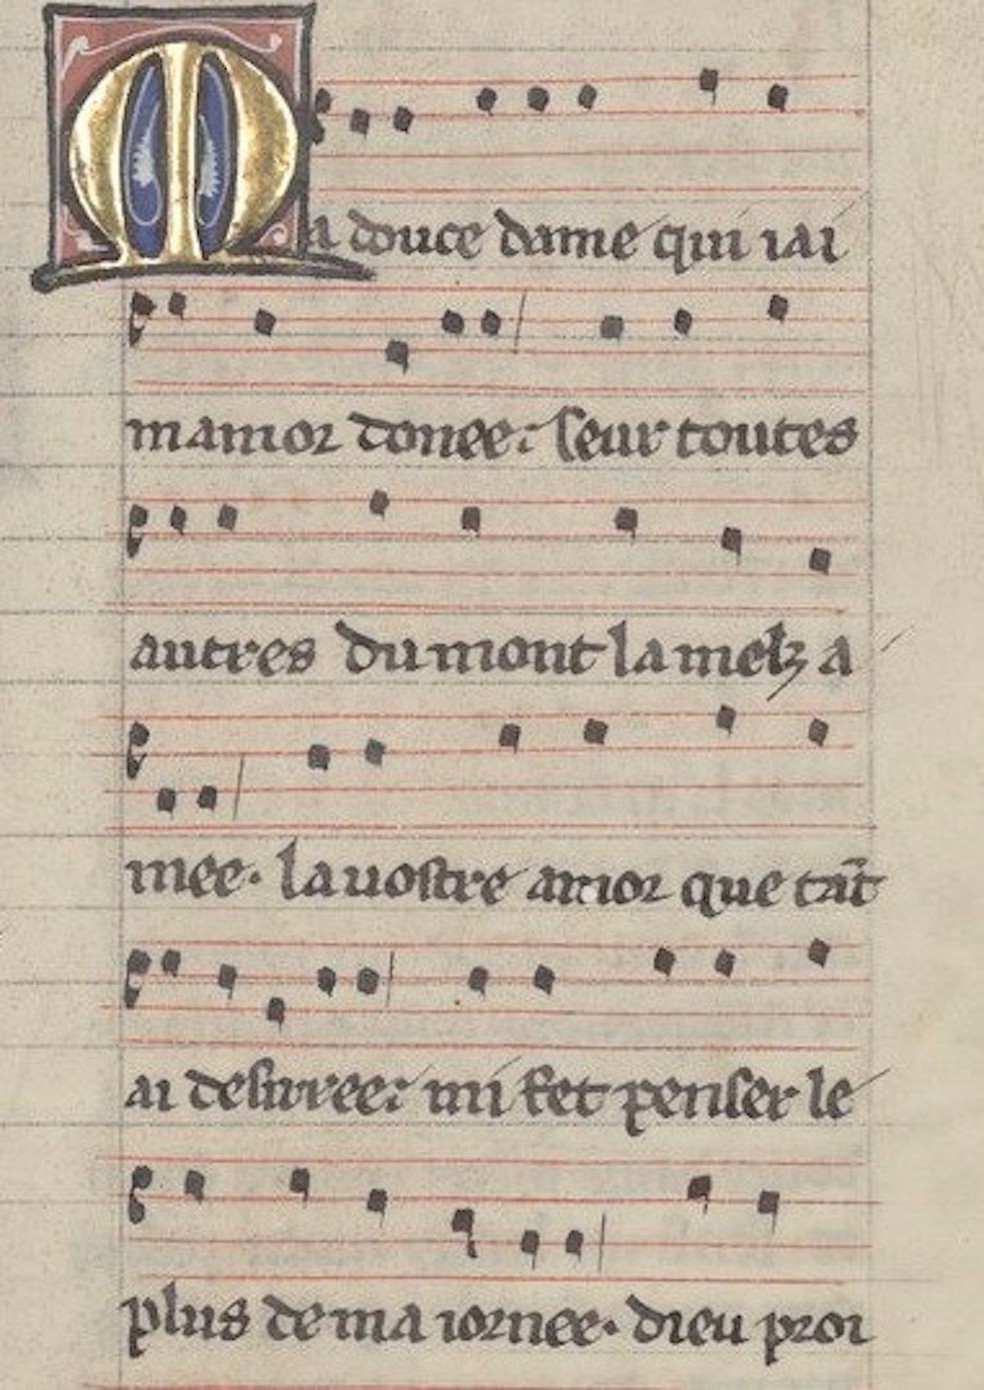 Ma douce dame qui iai
mamor donee: seur toutes
autres du mont la melz a
mee. la uostre amor que tāt
ai desirree: mi fet penser le
plus de ma iornee. dieu proi